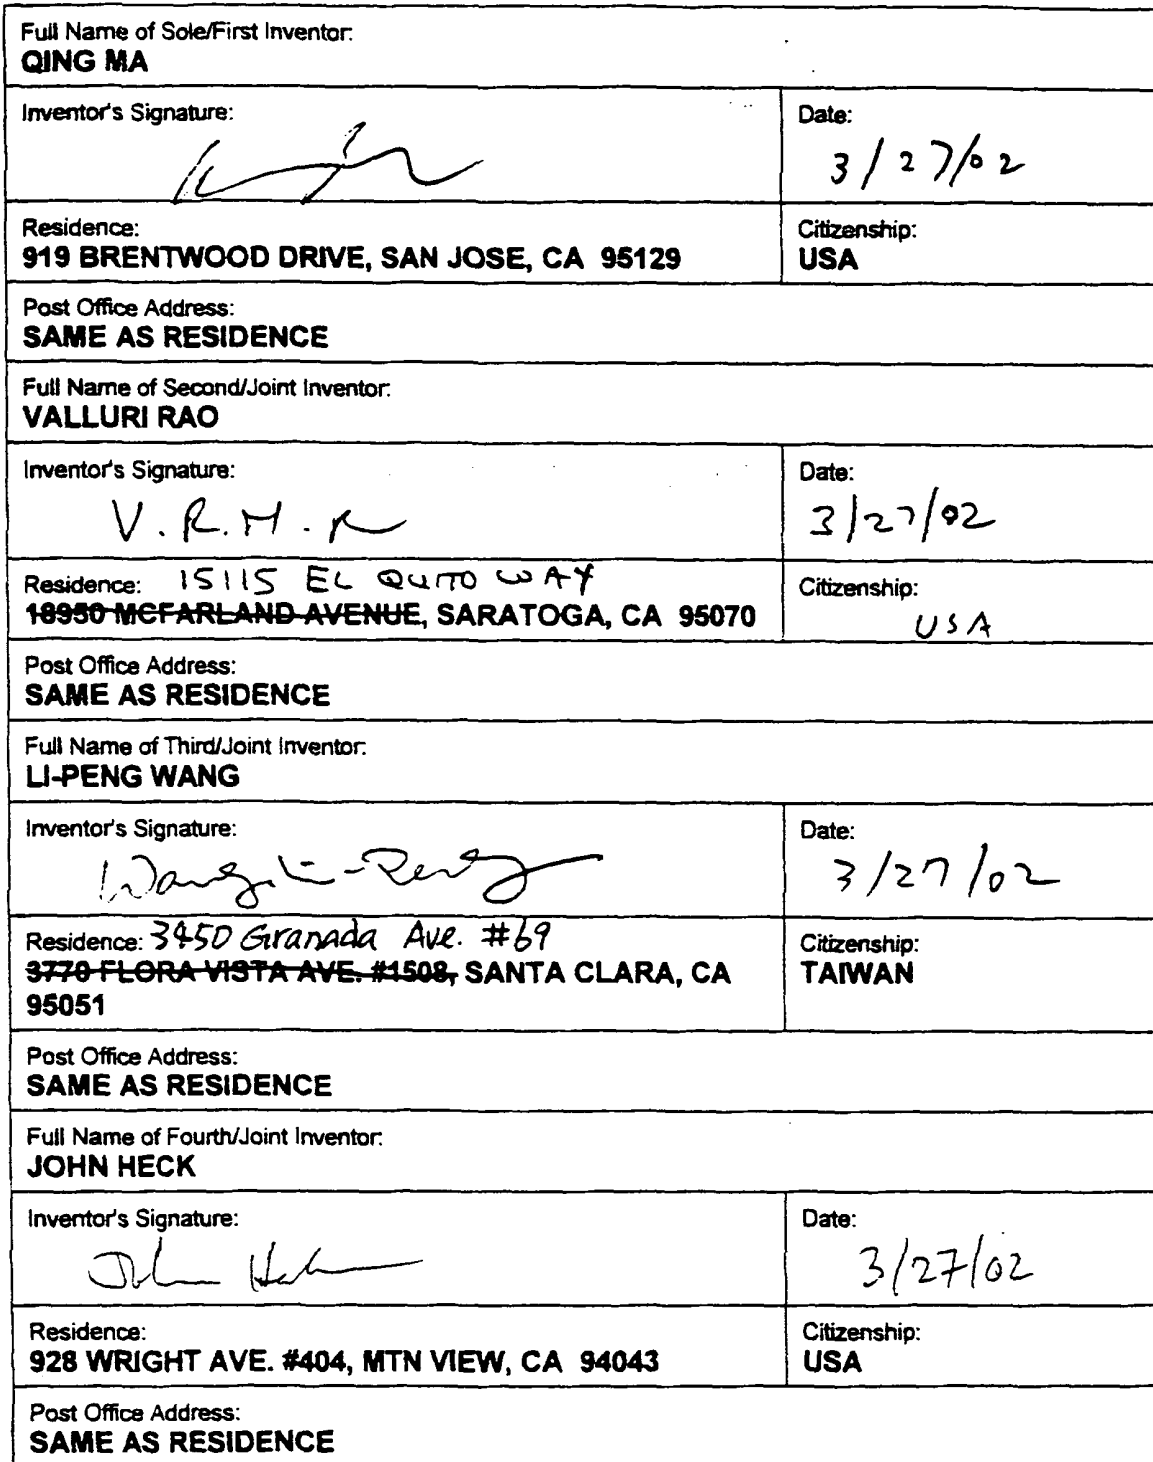 Full Name of Sole/First Inventor:
QING MA
Inventor's Signature:
Date:
3/27/02
Residence:
919 BRENTWOOD DRIVE, SAN JOSE, CA 95129
Citizenship:
USA
Post Office Address:
SAME AS RESIDENCE
Full Name of Second/Joint Inventor:
VALLURI RAO
Inventor's Signature:
V.R.M.R
Date:
3/27/02
Residence: 15115 EL QUITO WAY
18950 MCFARLAND AVENUE, SARATOGA, CA 95070
Citizenship:
USA
Post Office Address:
SAME AS RESIDENCE
Full Name of Third/Joint Inventor:
LI-PENG WANG
Inventor's Signature:
Wang, Li-Peng
Date:
3/27/02
Residence: 3450 Granada Ave. #69
3770 FLORA VISTA AVE. #1508, SANTA CLARA, CA
95051
Citizenship:
TAIWAN
Post Office Address:
SAME AS RESIDENCE
Full Name of Fourth/Joint Inventor:
JOHN HECK
Inventor's Signature:
John Heck
Date:
3/27/02
Residence:
928 WRIGHT AVE. #404, MTN VIEW, CA 94043
Citizenship:
USA
Post Office Address:
SAME AS RESIDENCE